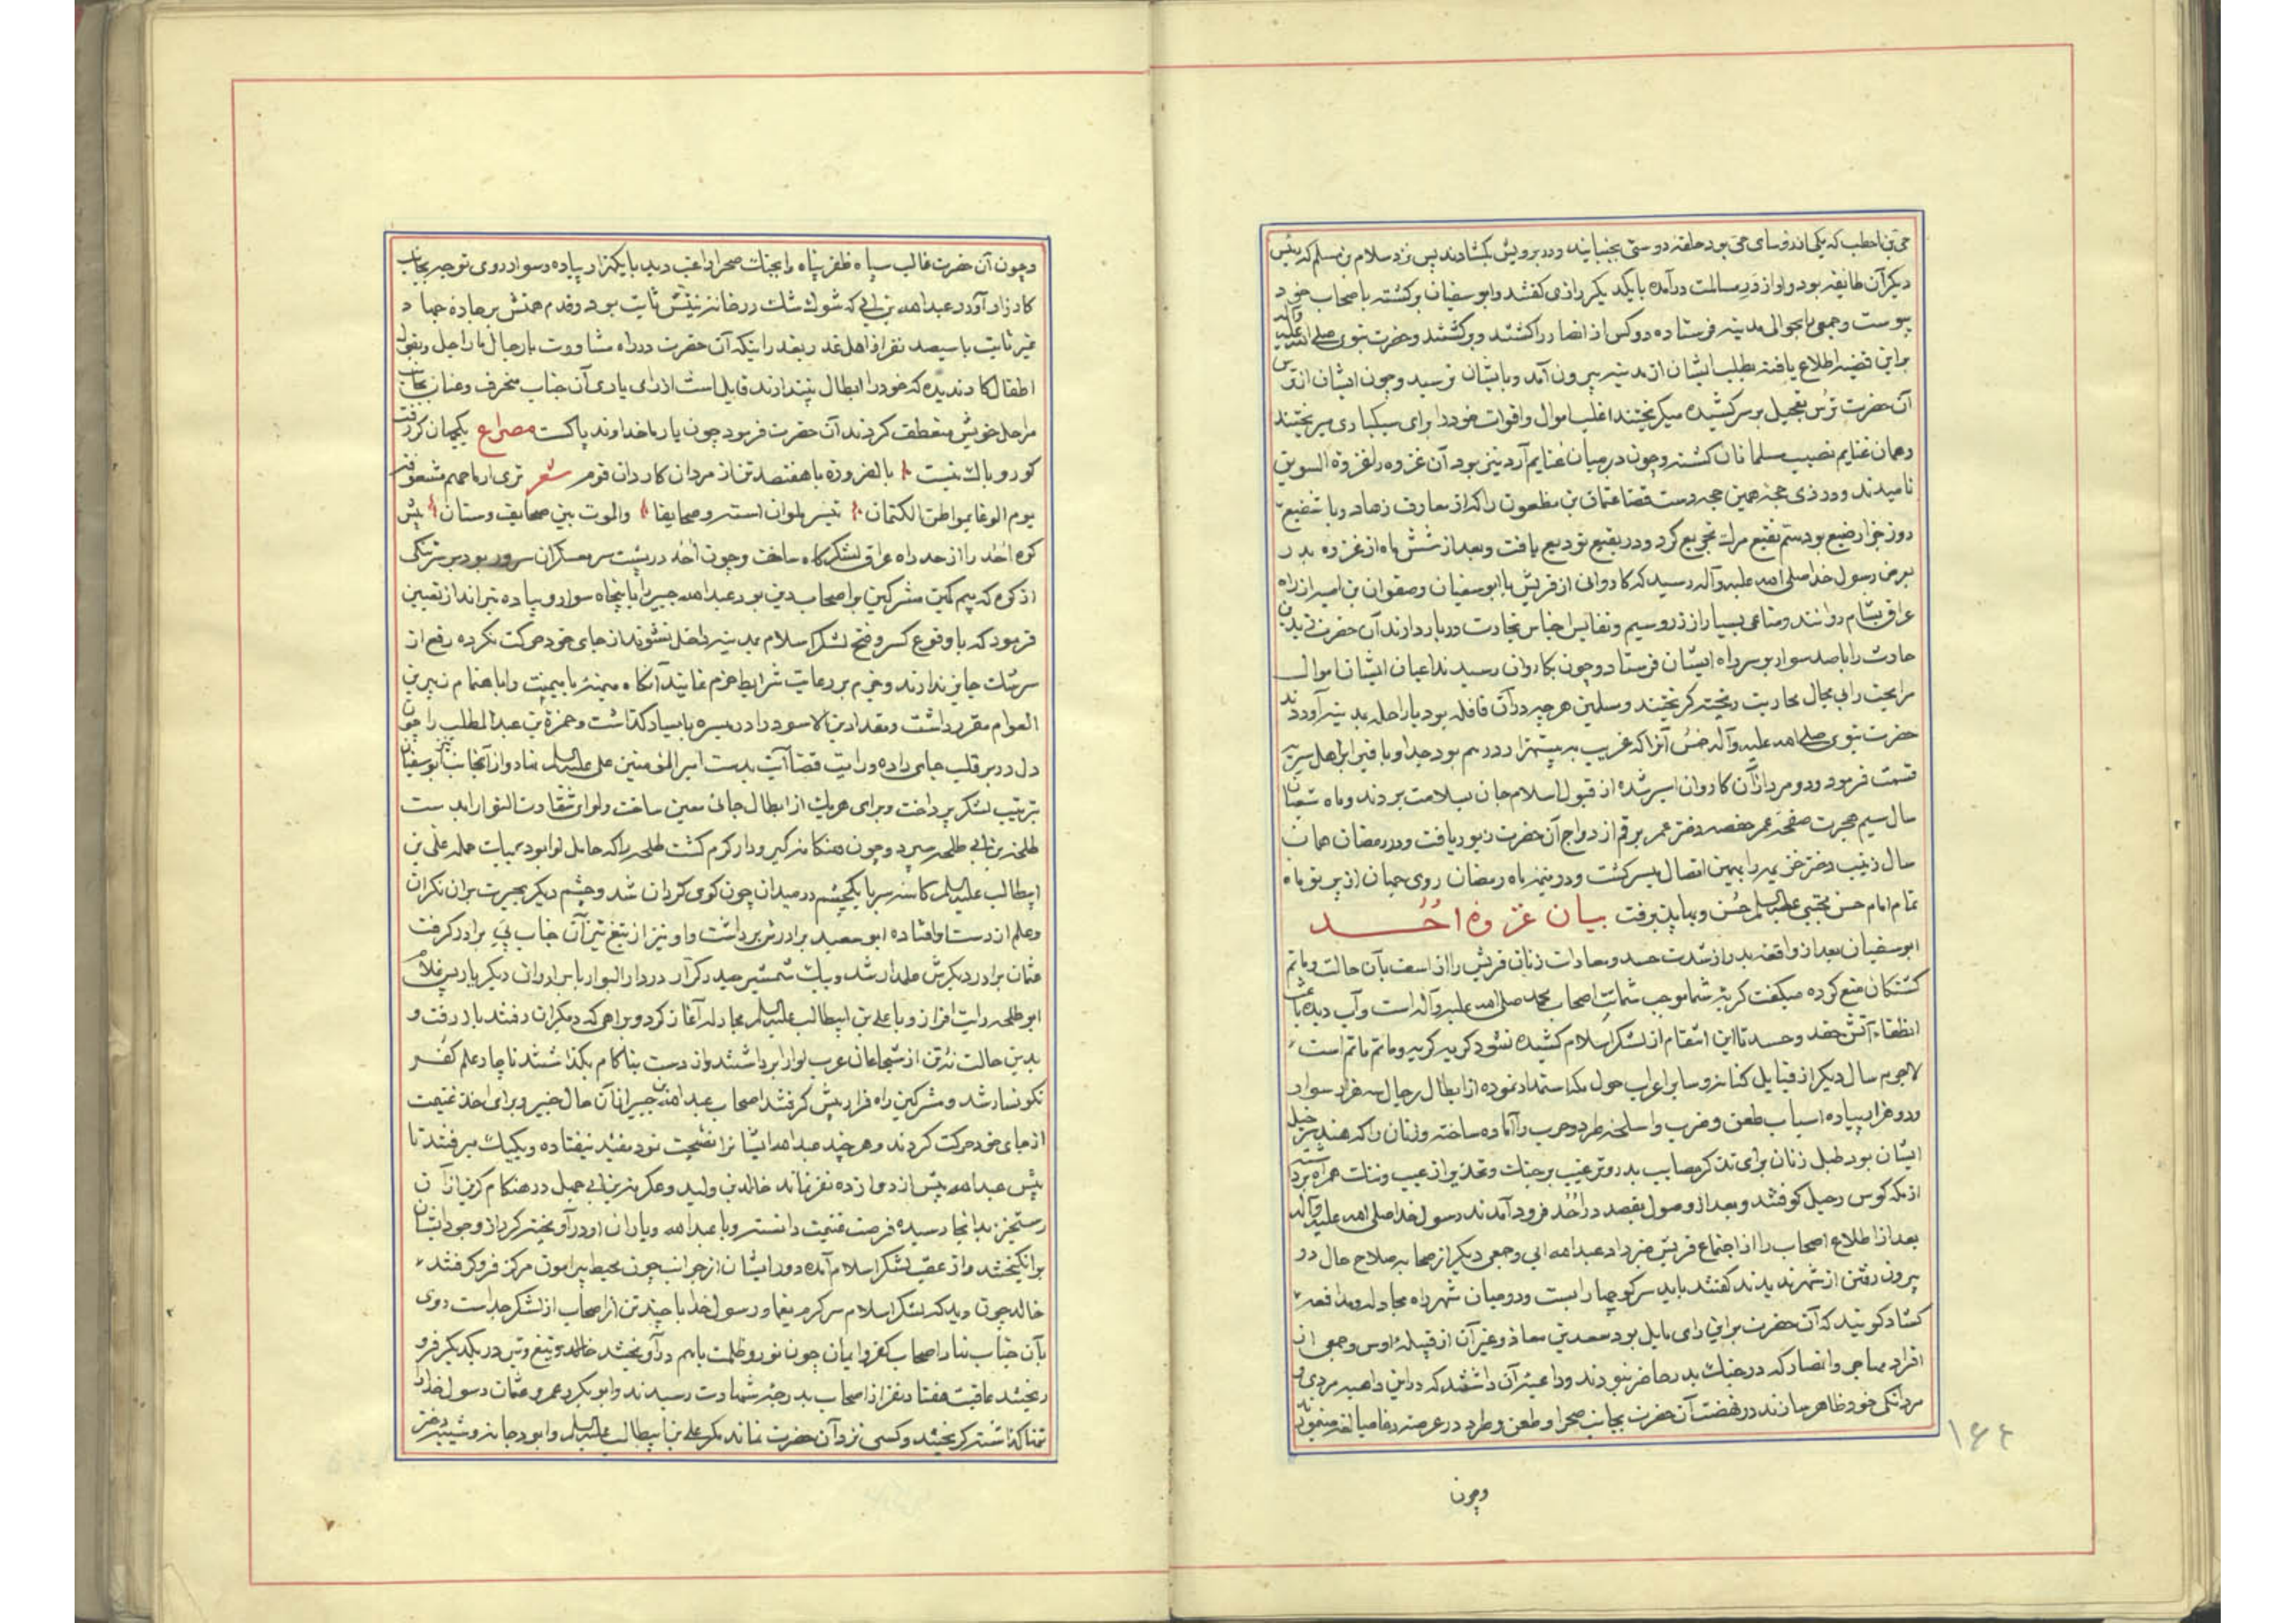 حی بن اخطب که یکی از رؤسای حی بود حلقهٔ دوستی بجنبانید و در برویش نکشادند پس نزد سلام بن مسلم که رئیس
دیکر آن طایفه بود و او از در سالمت درآمده با یکدیکر رازی کفتند و ابو سفیان برکشته باصحاب خود
پیوست و جمعی بحوالی مدینه فرستاده دو کس از انصار را کشتند و برکشتند و حضرت نبوی صلی الله علیه وآله
براین قضیه اطلاع یافته بطلب ایشان از مدینه بیرون آمد و بایشان نرسید و چون ایشان از ترس
آن حضرت بتعجیل میکریختند اغلب اموال و اقوات خود را برای سبکباری میریختند
و همان غنایم نصیب مسلمانان کشته و چون در میان غنایم آرد نیز بود آن غزوه را غزوة السویق
نامیدند و در ذی حجهٔ همین حجه دست قضا عثمان بن مظعون را که از معارف زهاد و با شفیع
روز جزا رضیع بود بسم نقیع مرک تجریع کرد و در بقیع تودیع یافت و بعد از شش ماه از غزوه بدر
بعرض رسول خدا صلی الله علیه وآله رسید که کاروانی از قریش با ابو سفیان و صفوان بن امیه از راه
عراق بشام روانند و متاعی بسیار از زر و سیم و نفایس اجناس تجارت دربار دارند آن حضرت زید بن
حارث را با صد سوار بر سر راه ایشان فرستاد و چون بکاروان رسیدند اعیان ایشان اموال
را بجت رابی مجال محاربت ریخته کریختند و مسلمین هر چه در آن قافله بود با راحله بمدینه آوردند
حضرت نبوی صلی الله علیه وآله خمس آنرا که قریب به بیستهزار درهم بود جدا و باقی را براهل سریه
قسمت فرمود و دو مرد از آن کاروان اسیر شده از قبول اسلام جان بسلامت بردند و ماه شعبان
سال سیم هجرت صفحهٔ عمر حفصه دختر عمر برقم ازدواج آن حضرت زیور یافت و در رمضان همان
سال زینب دختر خزیمه را بهمین اتصال میسر کشت و در نیمهٔ ماه رمضان روی جهان از پرتو ماه
تمام امام حسن مجتبی علیه السلم حسن و بها پذیرفت بیان غزوهٔ احُد
ابو سفیان بعد از واقعهٔ بدر از شدت حسد و معادات زنان قریش را از اسف بآن حالت و ماتم
کشتکان منع کرده میکفت کریهٔ شما موجب شماتت اصحاب محمد صلی الله علیه وآله است و آب دیده باعث
انطفاء آتش حقد و حسد تا این انتقام از لشکر اسلام کشیده نشود کریه کریه و ماتم ماتم است
لاجرم سال دیکر از قبایل کنانه و سایر اعراب حول مکه استمداد نموده از ابطال رجال سه هزار سوار
و دو هزار پیاده اسباب طعن و ضرب و اسلحهٔ طرد و حرب را آماده ساخته و زنان را که هند سر خیل
ایشان بود طبل زنان برای تذکر مصایب بدر و ترغیب برجنک و تحذیر از عیب و ننک همراه برداشته
از مکه کوس رحیل کوفتند و بعد از وصول بمقصد در احُد فرود آمدند رسول خدا صلی الله علیه وآله
بعد از اطلاع اصحاب را از اجتماع قریش خبر داد عبدالله ابی و جمعی دیکر از صحابه صلاح حال در
بیرون رفتن از شهر ندیدند کفتند باید سر کوچها را بست و در میان شهر راه مجادله و مدافعه
کشاد کویند که آن حضرت براین رای مایل بود سعد بن معاذ و غیر آن از قبیلهٔ اوس و جمعی از
افراد مهاجر و انصار که در جنک بدر حاضر نبودند و داعیهٔ آن داشتند که در این داهیه مردی و
مردانکی خود ظاهر سازند در نهضت آن حضرت بجانب صحرا و طعن و طرد در عرصهٔ دغا مبالغه مینمودند
۱۶۴
وچون
وچون آن حضرت غالب سپاه ظفر پناه را بجنک صحرا راغب دید با یکهزار پیاده و سوار روی توجه بجانب
کارزار آورد عبدالله بن ابی که شوک شک در خانهٔ نیتش ثابت بود و قدم همتش بر جادهٔ جهاد
غیر ثابت با سیصد نفر از اهل غدر بعذر اینکه آن حضرت در راه مشاورت با رجال با راحل و بقول
اطفال کار ندیده که خود را ابطال پندارند قایل است از رای یاری آن جناب منحرف و عنان بجانب
مراحل خویش منعطف کردند آن حضرت فرمود چون یار ما خداوند پاکست مصراع یکجهان کر رفت
کور و باک نیست بالضروره با هفتصد تن از مردان کاردان قوم شعر تری ارماحهم مشعوفة
یوم الوغا بمواطن الکتمان تبسر بلوان استه و صحایفا والموت بین صحایف وستان پیش
کوه احُد را از حد راه عراق لشکرکاه ساخت و چون احُد در پشت سر معسکران سرور بود بر سر تنکی
از کوه که بیم کمین مشرکین براصحاب دین بود عبدالله جبیر را با پنجاه سوار و پیاده تیرانداز تعیین
فرمود که با وقوع کسر و فتح لشکر اسلام بمدینه داخل نشوند از جای خود حرکت نکرده رفع از
سر تنک جایز ندارند و خرم بر رعایت شرایط حزم نمایند آنکاه میمنهٔ با میمنت را باهتمام زبیر بن
العوام مقرر داشت و مقداد بن الاسود را در میسره با یسار کذاشت و حمزة بن عبدالمطلب را چون
دل در بر قلب جای داده و رایت قضا آیت بدست امیر المؤمنین علی علیه السلم نهاد و از آنجانب نیز ابو سفیان
بترتیب لشکر پرداخت و برای هریک از ابطال جائی معین ساخت و لوای شقاوت التوا را بدست
طلحة بن ابی طلحه سپرد و چون هنکامهٔ کیر و دار کرم کشت طلحه را که حامل لوا بود بیک حمله علی بن
ابیطالب علیه السلم کاسهٔ سر با یکچشم در میدان چون کوی کردان شد و چشم دیکر بحیرت بران نکران
و علم از دست او افتاده ابو سعید برادرش برداشت و او نیز از تیغ تیز آن جناب پی برادر کرفت
عثمان برادر دیکرش علمدار شد و بیک شمشیر حیدر کرار در دار البوار با برادران دیکر یار پس غلام
ابو طلحه رایت افراز و با علی بن ابیطالب علیه السلم مجادله آغاز کرد و براهی که دیکران رفتند باز رفت و
بدین حالت نه تن از شجاعان عرب لوا را برداشتند و از دست بناکام بکذاشتند ناچار علم کفر
نکونسار شد و مشرکین راه فرار پیش کرفتند اصحاب عبدالله بن جبیر از آن حال خبیر و برای اخذ غنیمت
از جای خود حرکت کردند و هر چند عبدالله ایشان را نصیحت نمود مفید نیفتاده و یکیک میرفتند تا
پیش عبدالله بیش از دوازده نفر نماند خالد بن ولید و عکرمة بن ابی جهل در هنکام کریز از آن
رستخیز بدانجا رسیده فرصت غنیمت دانسته و با عبدالله و یاران او درآویخته کرد از وجود ایشان
برانکیختند و از عقب لشکر اسلام آمده دور ایشان از جوانب چون محیط پیرامون مرکز فرو کرفتند
خالد چون دید که لشکر اسلام سرکرم یغما و رسول خدا با چند تن از اصحاب از لشکر جداست روی
بآن جناب نهاد اصحاب کفر و ایمان چون نور و ظلمت باهم درآویختند خالد تیغ و تیر در یکدیکر فرو
ریختند عاقبت هفتاد نفر از اصحاب بدرجهٔ شهادت رسیدند و ابو بکر و عمر و عثمان رسول خدا را
تنها کذاشته کریختند و کسی نزد آن حضرت نماند مکر علی بن ابیطالب علیه السلم و ابو دجانه و نسیبه دختر